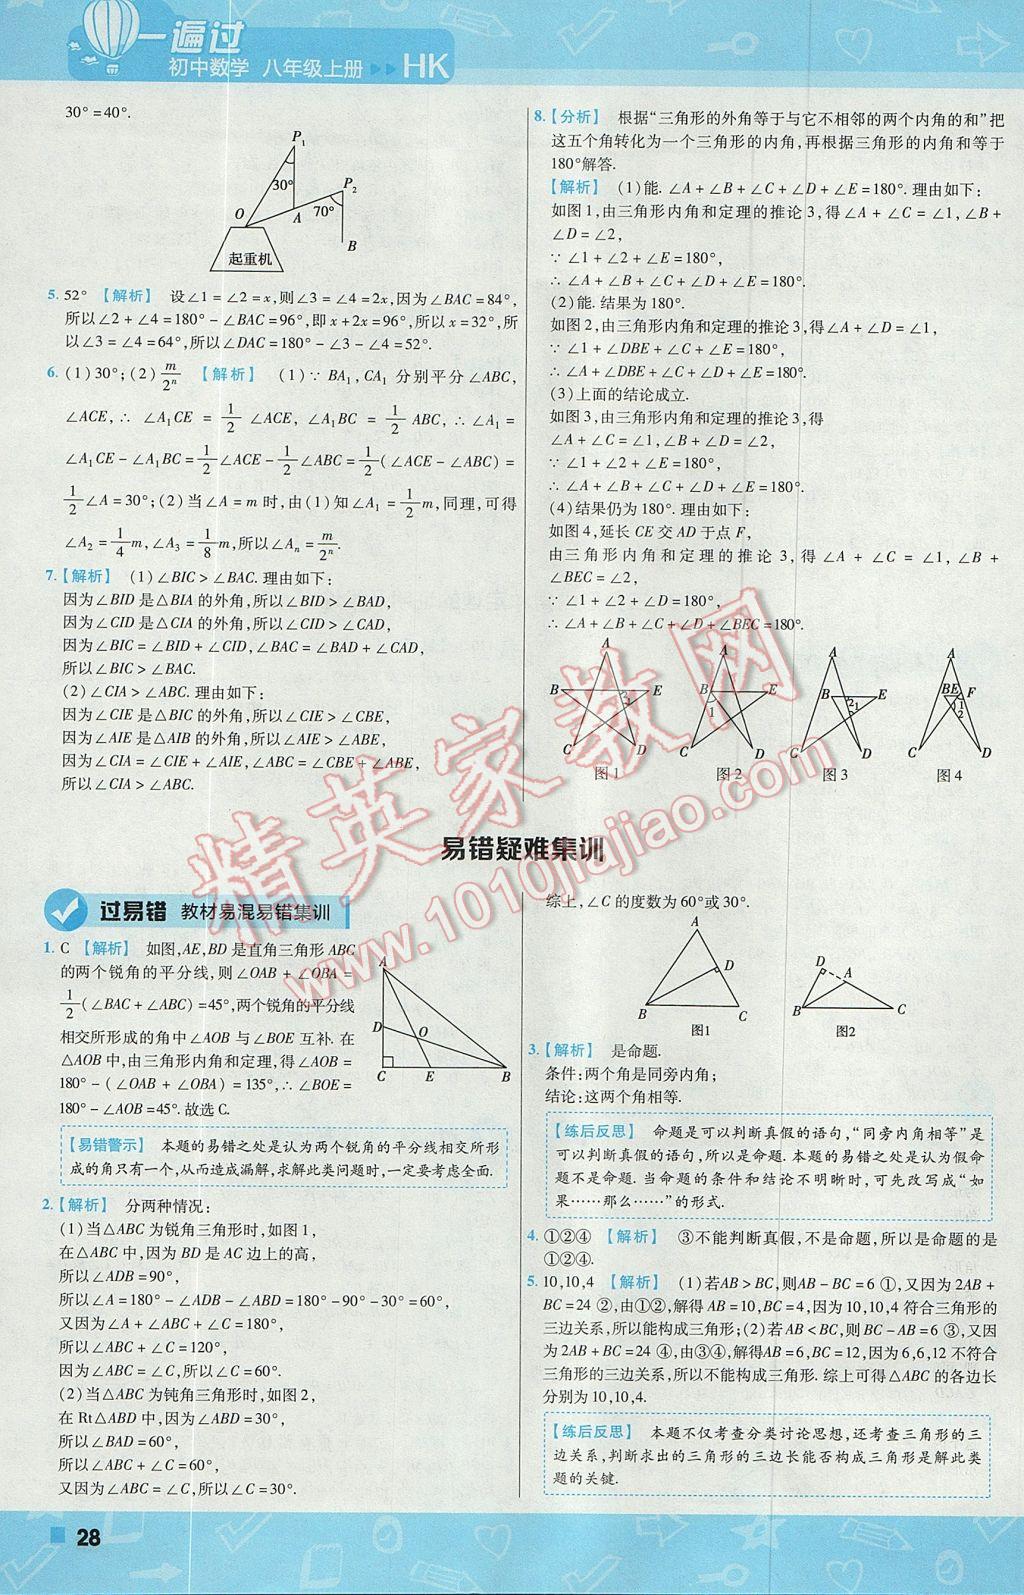 一遍过
初中数学 八年级上册 HK
30°=40°.
P₁
30°
P₂
O
A
70°
B
起重机
5. 52° 【解析】 设∠1=∠2=x,则∠3=∠4=2x,因为∠BAC=84°,
所以∠2+∠4=180°-∠BAC=96°,即x+2x=96°,所以x=32°,所
以∠3=∠4=64°,所以∠DAC=180°-∠3-∠4=52°.
6. (1)30°;(2)m/2ⁿ 【解析】 (1)∵BA₁,CA₁ 分别平分∠ABC,
∠ACE,∴∠A₁CE=1/2∠ACE,∠A₁BC=1/2ABC,∴∠A₁=
∠A₁CE-∠A₁BC=1/2∠ACE-1/2∠ABC=1/2(∠ACE-∠ABC)=
1/2∠A=30°;(2)当∠A=m时,由(1)知∠A₁=1/2m,同理,可得
∠A₂=1/4m,∠A₃=1/8m,所以∠Aₙ=m/2ⁿ.
7.【解析】 (1)∠BIC>∠BAC.理由如下:
因为∠BID是△BIA的外角,所以∠BID>∠BAD,
因为∠CID是△CIA的外角,所以∠CID>∠CAD,
因为∠BIC=∠BID+∠CID,∠BAC=∠BAD+∠CAD,
所以∠BIC>∠BAC.
(2)∠CIA>∠ABC.理由如下:
因为∠CIE是△BIC的外角,所以∠CIE>∠CBE,
因为∠AIE是△AIB的外角,所以∠AIE>∠ABE,
因为∠CIA=∠CIE+∠AIE,∠ABC=∠CBE+∠ABE,
所以∠CIA>∠ABC.
8.【分析】 根据“三角形的外角等于与它不相邻的两个内角的和”把
这五个角转化为一个三角形的内角,再根据三角形的内角和等于
180°解答.
【解析】 (1)能.∠A+∠B+∠C+∠D+∠E=180°.理由如下:
如图1,由三角形内角和定理的推论3,得∠A+∠C=∠1,∠B+
∠D=∠2,
∵∠1+∠2+∠E=180°,
∴∠A+∠B+∠C+∠D+∠E=180°.
(2)能.结果为180°.
如图2,由三角形内角和定理的推论3,得∠A+∠D=∠1,
∵∠1+∠DBE+∠C+∠E=180°,
∴∠A+∠DBE+∠C+∠D+∠E=180°.
(3)上面的结论成立.
如图3,由三角形内角和定理的推论3,得
∠A+∠C=∠1,∠B+∠D=∠2,
∵∠1+∠2+∠E=180°,
∴∠A+∠B+∠C+∠D+∠E=180°.
(4)结果仍为180°.理由如下:
如图4,延长CE交AD于点F,
由三角形内角和定理的推论3,得∠A+∠C=∠1,∠B+
∠BEC=∠2,
∵∠1+∠2+∠D=180°,
∴∠A+∠B+∠C+∠D+∠BEC=180°.
A B E C D 图1
A B E 1 C D 图2
A B E 2 1 C D 图3
A B E F 1 2 C D 图4
精英家教网
www.1010jiajiao.com
易错疑难集训
过易错 教材易混易错集训
1. C 【解析】 如图,AE,BD是直角三角形ABC
的两个锐角的平分线,则∠OAB+∠OBA=
1/2(∠BAC+∠ABC)=45°,两个锐角的平分线
相交所形成的角中∠AOB与∠BOE互补.在
△AOB中,由三角形内角和定理,得∠AOB=
180°-(∠OAB+∠OBA)=135°,∴∠BOE=
180°-∠AOB=45°.故选C.
A
D
O
C E B
【易错警示】 本题的易错之处是认为两个锐角的平分线相交所形
成的角只有一个,从而造成漏解,求解此类问题时,一定要考虑全面.
2.【解析】 分两种情况:
(1)当△ABC为锐角三角形时,如图1,
在△ABC中,因为BD是AC边上的高,
所以∠ADB=90°,
所以∠A=180°-∠ADB-∠ABD=180°-90°-30°=60°,
又因为∠A+∠ABC+∠C=180°,
所以∠ABC+∠C=120°,
因为∠ABC=∠C,所以∠C=60°.
(2)当△ABC为钝角三角形时,如图2,
在Rt△ABD中,因为∠ABD=30°,
所以∠BAD=60°,
所以∠ABC+∠C=60°,
又因为∠ABC=∠C,所以∠C=30°.
综上,∠C的度数为60°或30°.
A
D
B C
图1
D
A
B C
图2
3.【解析】 是命题.
条件:两个角是同旁内角;
结论:这两个角相等.
【练后反思】 命题是可以判断真假的语句,“同旁内角相等”是
可以判断真假的语句,所以是命题.本题的易错之处是认为假命
题不是命题.当命题的条件和结论不明晰时,可先改写成“如
果……那么……”的形式.
4. ①②④ 【解析】 ③不能判断真假,不是命题,所以是命题的是
①②④.
5. 10,10,4 【解析】 (1)若AB>BC,则AB-BC=6 ①,又因为2AB+
BC=24 ②,由①②,解得AB=10,BC=4,因为10,10,4符合三角形的
三边关系,所以能构成三角形;(2)若AB<BC,则BC-AB=6 ③,又因
为2AB+BC=24 ④,由③④,解得AB=6,BC=12,因为6,6,12不符合
三角形的三边关系,所以不能构成三角形.综上可得△ABC的各边长
分别为10,10,4.
【练后反思】 本题不仅考查分类讨论思想,还考查三角形的三
边关系,判断求出的三角形的三边长能否构成三角形是解此类
题的关键.
28